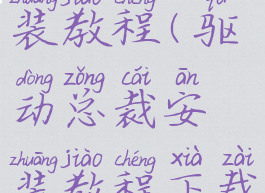 zhuāng jiào chéng qū
装教程(驱
dòng zǒng cái ān
动总裁安
zhuāng jiào chéng xià zài
装教程下载